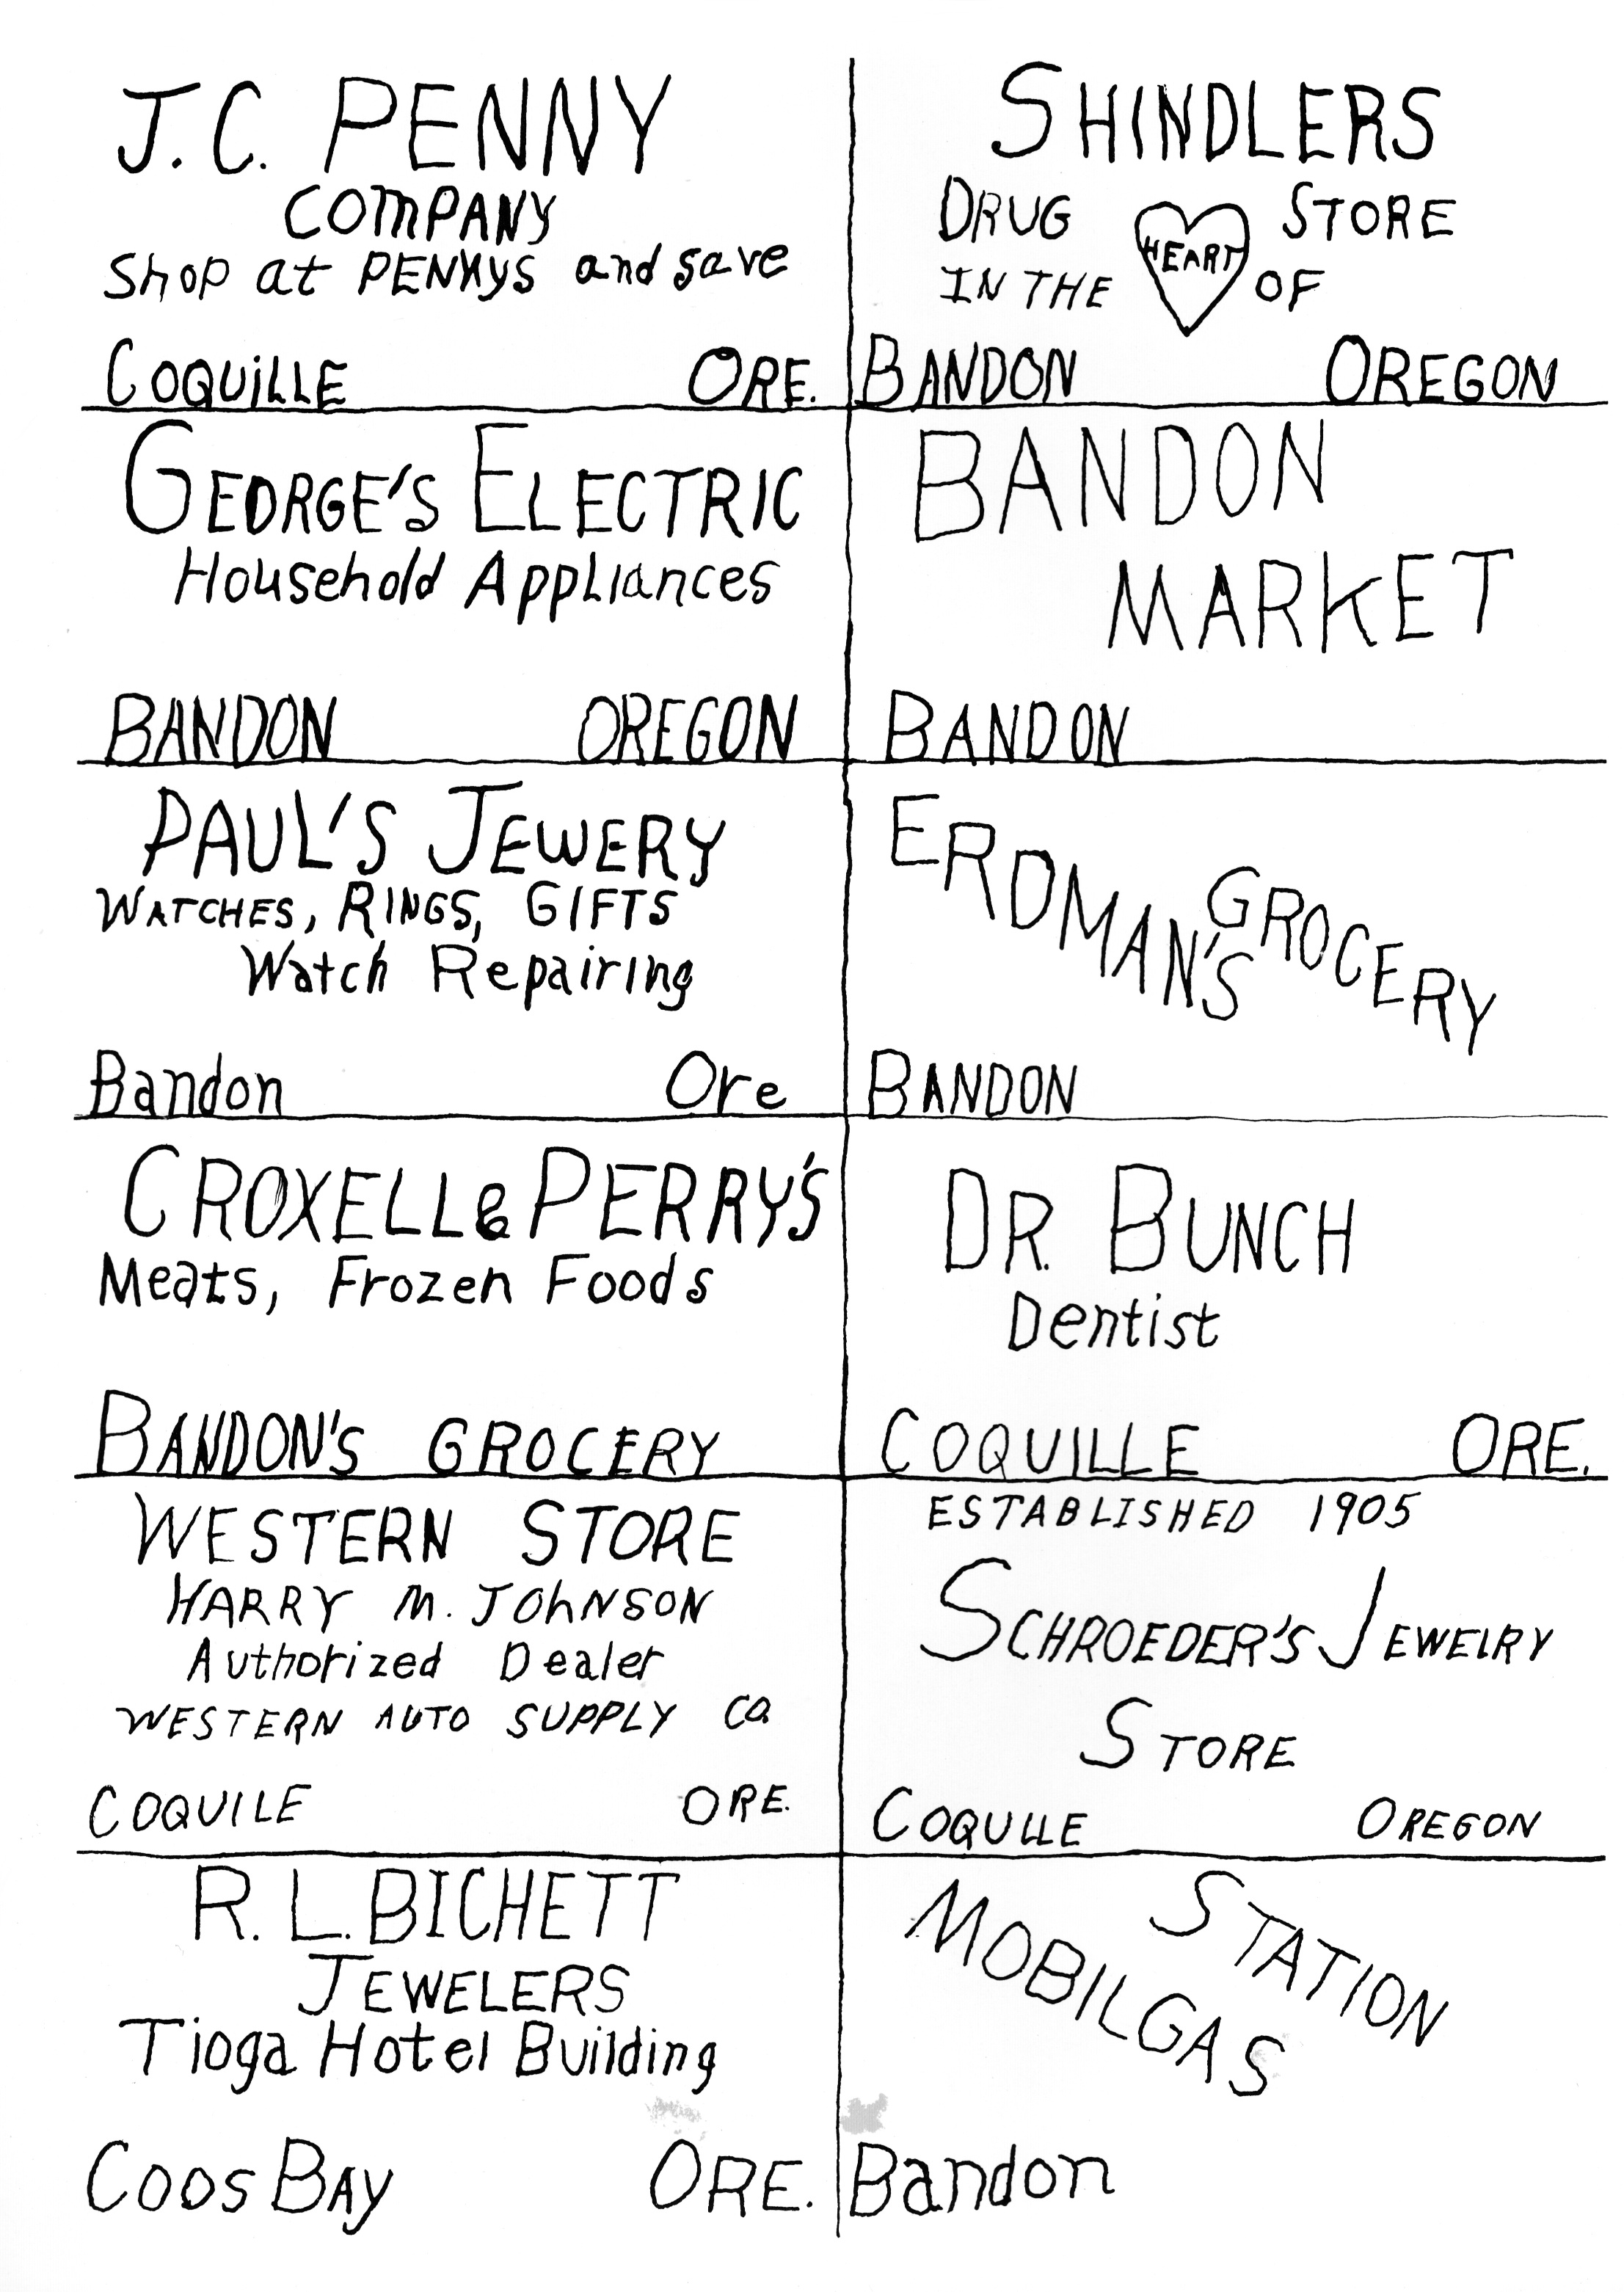 J.C. PENNY
COMPANY
Shop at PENNYS and save
COQUiLLE ORE.
SHINDLERS
DRUG STORE
IN THE HEART OF
BANDON OREGON
GEORGE'S ELECTRIC
Household Appliances
BANDON OREGON
BANDON
MARKET
BANDON
PAUL'S JEWERY
WATCHES, RINGS, GIFTS
Watch Repairing
Bandon Ore
ERDMAN'S
GROCERY
BANDON
CROXELL & PERRY'S
Meats, Frozen Foods
BANDON'S GROCERY
DR. BUNCH
Dentist
COQUILLE ORE.
WESTERN STORE
HARRY M. JOhNSON
Authorized Dealer
WESTERN AUTO SUPPLY CO.
COQUILE ORE.
ESTABLISHED 1905
SCHROEDER'S JEWElRY
STORE
COQULLE OREGON
R. L. BICHETT
JEWELERS
Tioga Hotel Building
COOS BAY ORE.
MOBILGAS
STATION
Bandon